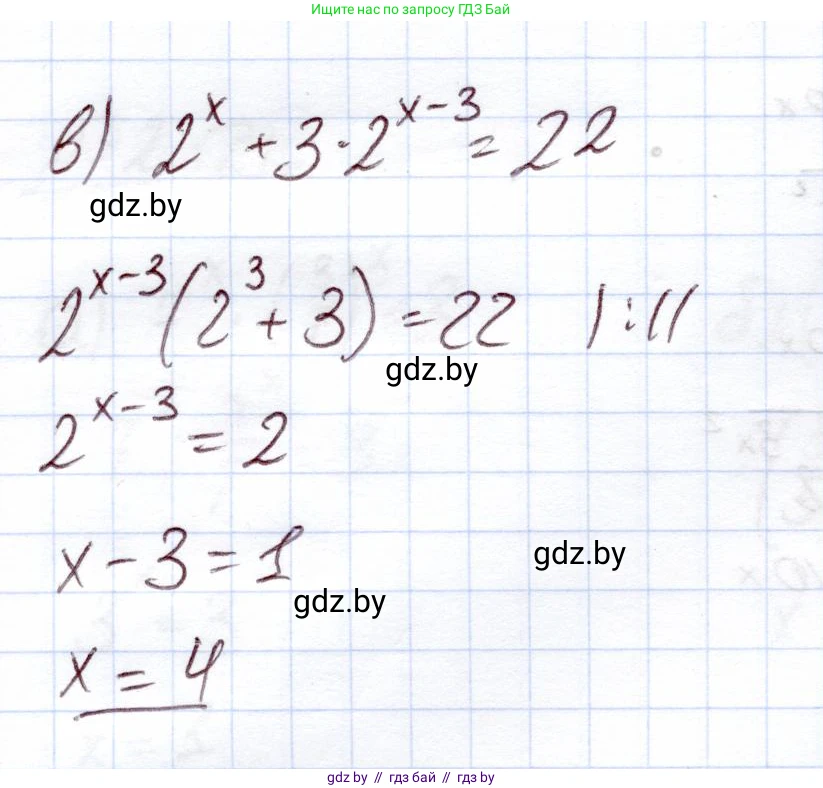 Ищите нас по запросу ГДЗ Бай
в) 2^x + 3 · 2^{x-3} = 22
gdz.by
2^{x-3} (2^3 + 3) = 22 | : 11
gdz.by
2^{x-3} = 2
x - 3 = 1
gdz.by
gdz.by
x = 4
gdz by // гдз бай // гдз by